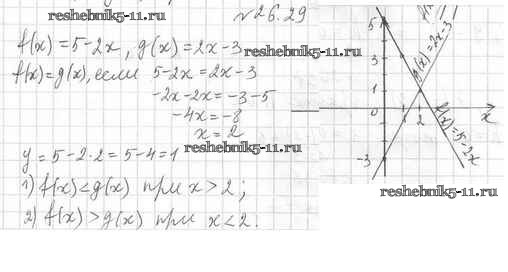 reshebnik5-11.ru
№26.29
f(x)=5-2x, g(x)=2x-3
reshebnik5-11.ru
f(x)=g(x), если 5-2x=2x-3
-2x-2x=-3-5
-4x=-8
x=2
reshebnik5-11.ru
y=5-2·2=5-4=1
1) f(x)<g(x) при x>2;
2) f(x)>g(x) при x<2.
5
3
1
0
1 2
x
-3
g(x)=2x-3
f(x)=5-2x
reshebnik5-11.ru